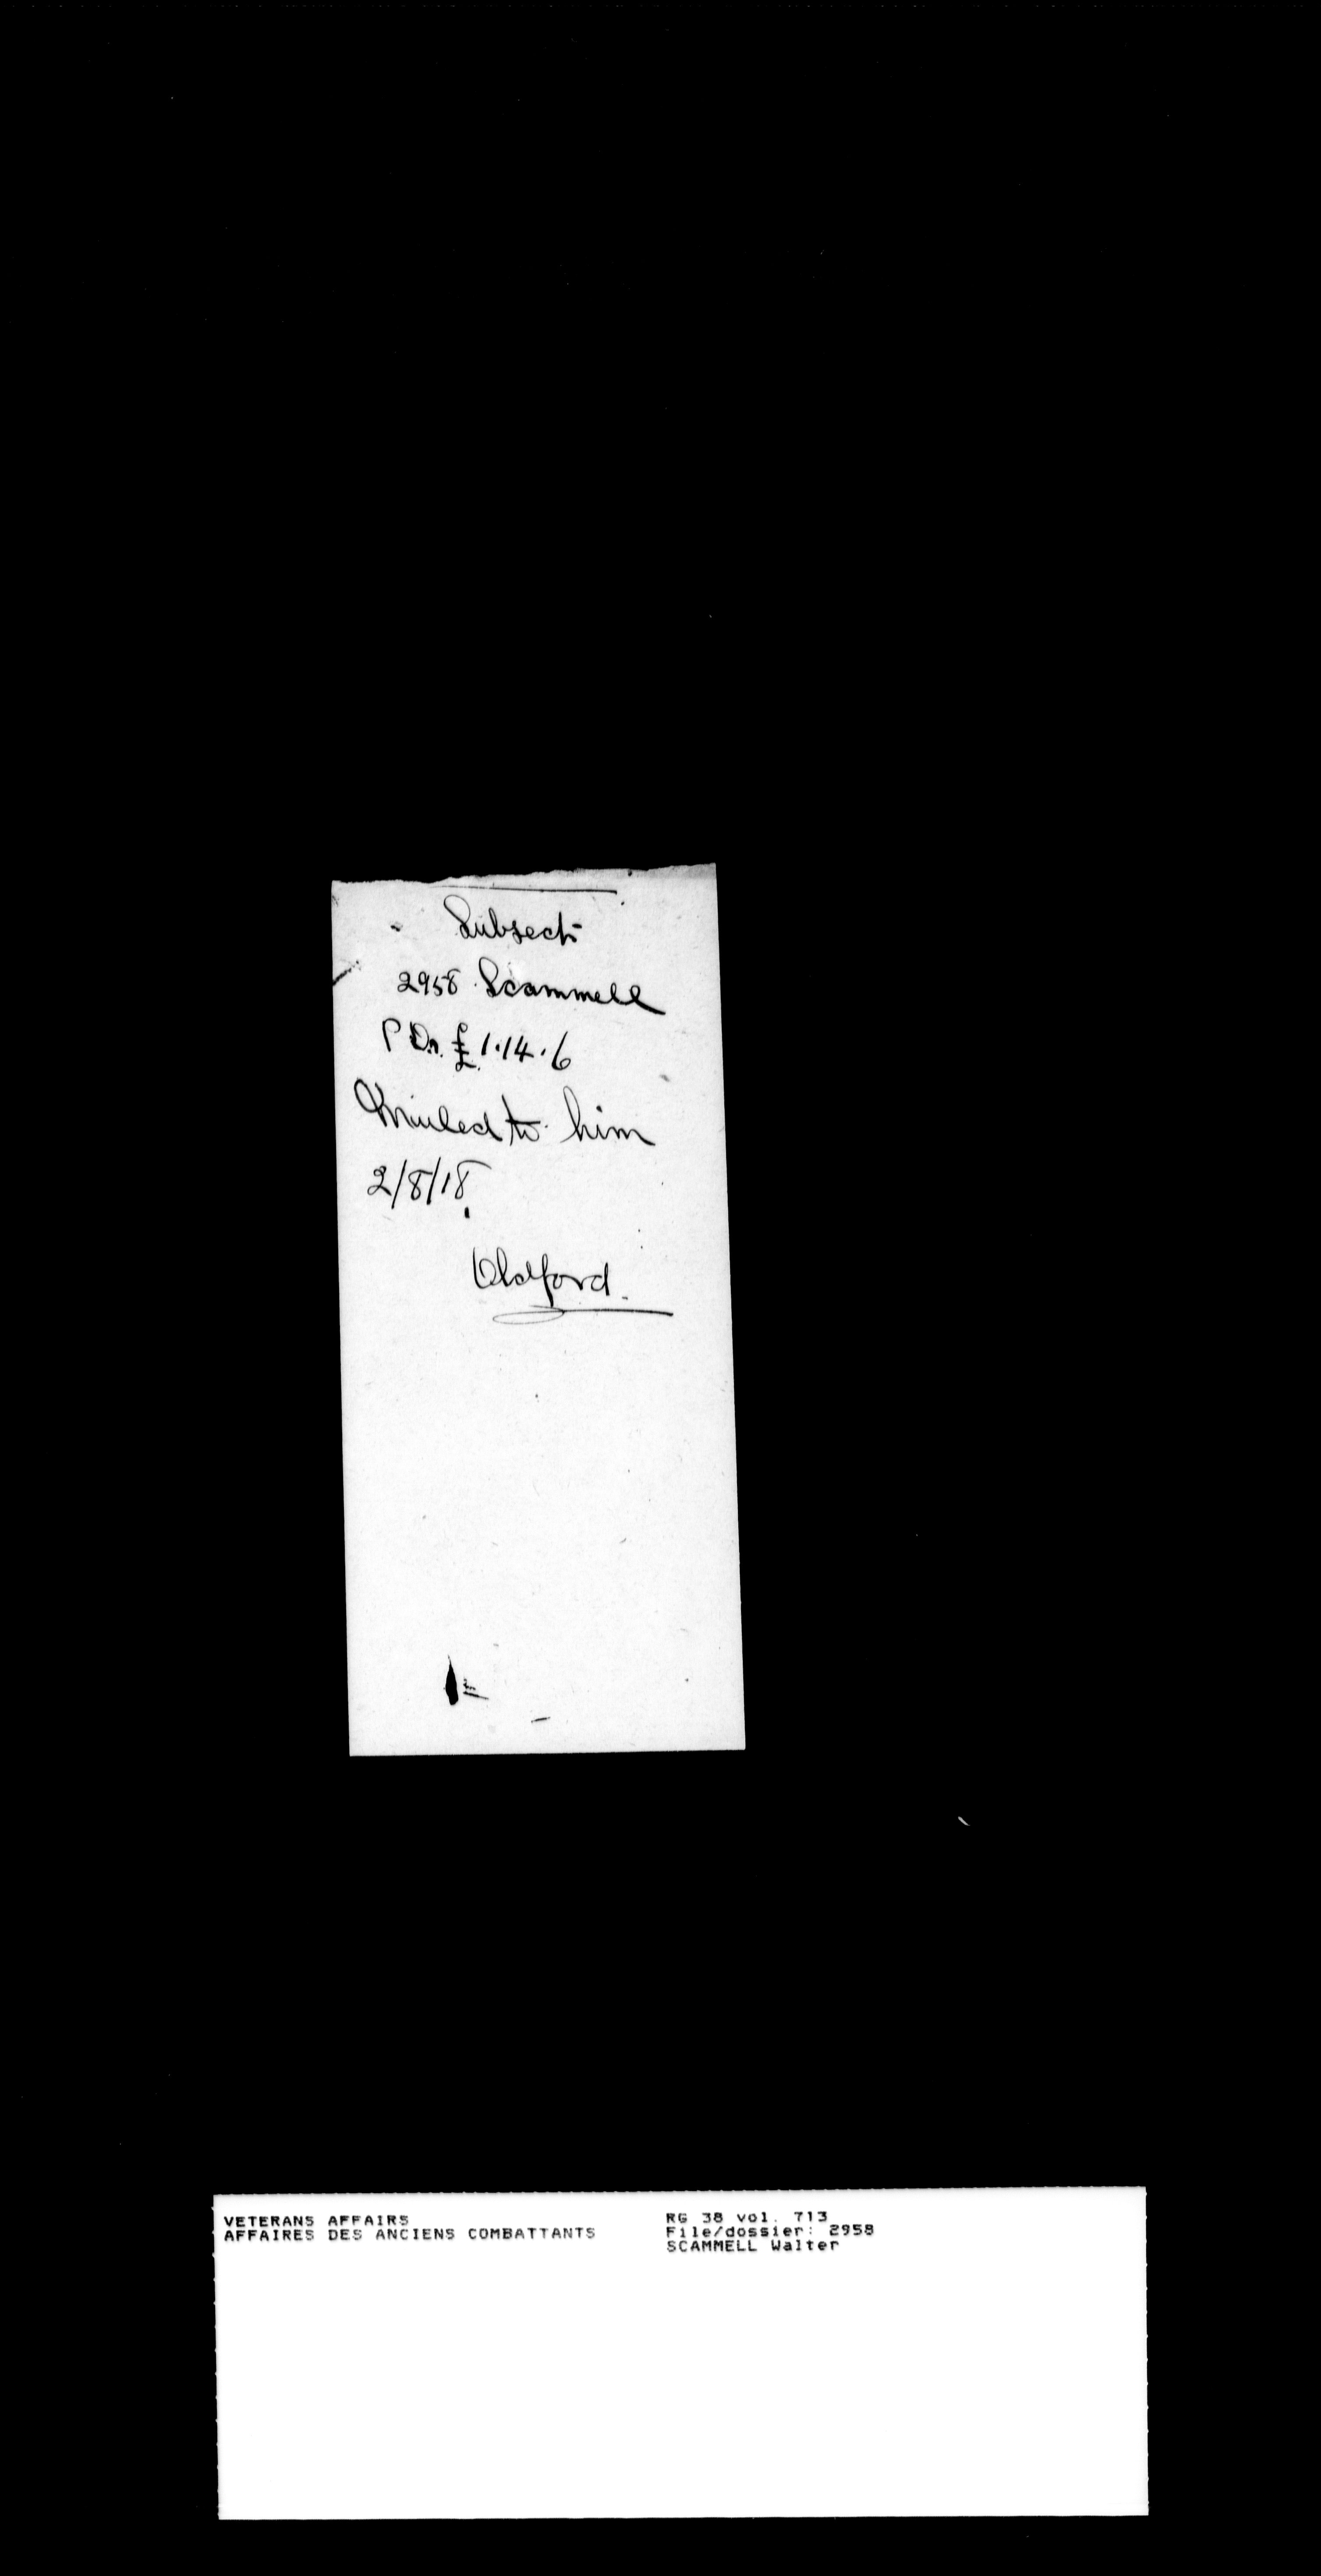 Subject
2958 Scammell
P Dn. £1.14.6
to him
2/8/18
Oldford.
VETERANS AFFAIRS
AFFAIRES DES ANCIENS COMBATTANTS
RG 38 vol. 713
File/dossier: 2958
SCAMMELL Walter